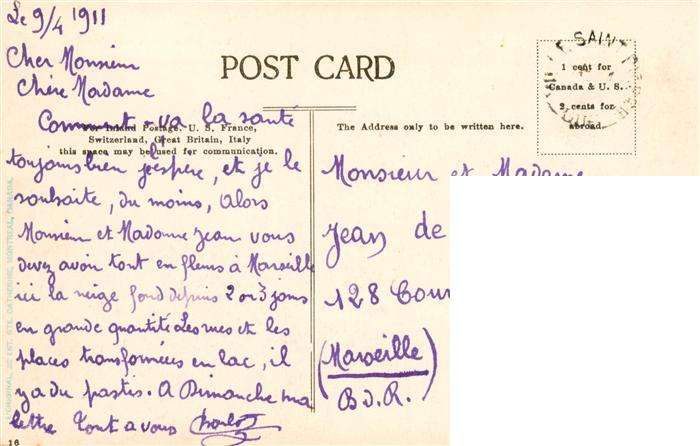 Le 9/4 1911
Cher Monsieur
Chère Madame
POST CARD
Comment-va la santé
For Inland Postage, U. S. France,
Switzerland, Great Britain, Italy
this space may be used for communication.
toujours bien j'espère, et je le
souhaite, du moins, Alors
Monsieur et Madame Jean vous
devez avoir tout en fleurs à Marseille
ici la neige fond depuis 2 ou 3 jours
en grande quantité Les rues et les
places transformées en lac, il
y a du pastis. A Dimanche ma
lettre Tout a vous
16
The Address only to be written here.
1 cent for
Canada & U. S.
2 cents for
abroad.
SAIN
Monsieur et Madame
Jean de
128 Cour
(Marseille)
B.d.R.